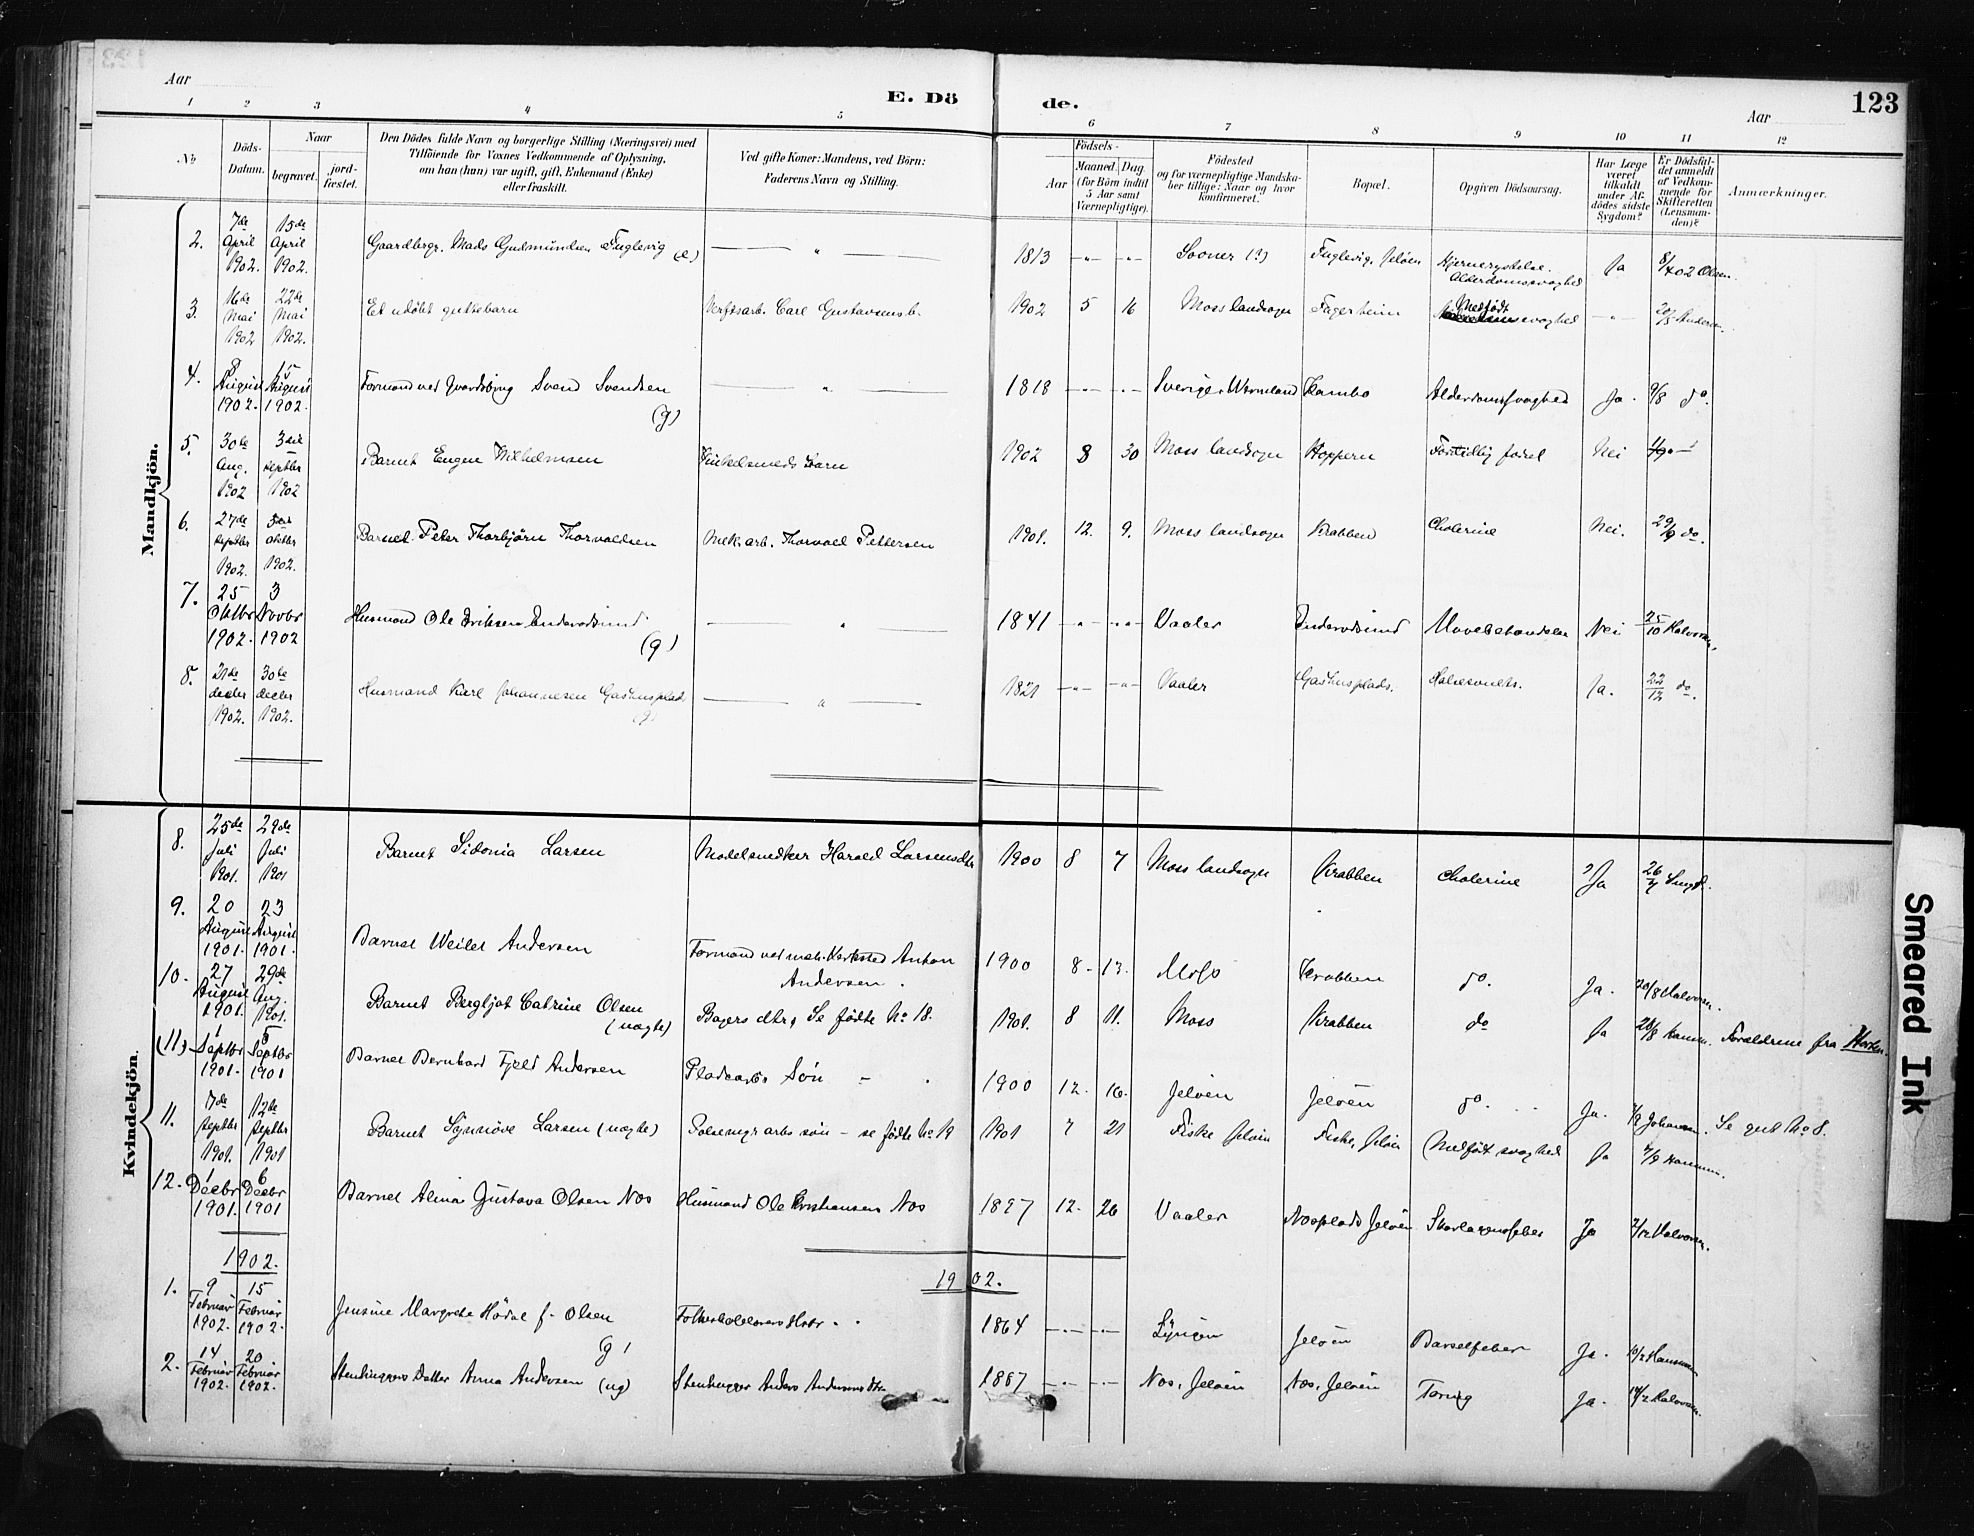 Aar
E. Dö de.
Aar
123
1 2 3 4 5 6 7 8 9 10 11 12
No
Döds-Datum.
Naar
begravet.
jord-fæstet.
Den Dödes fulde Navn og borgerlige Stilling (Næringsvei) med
Tilföiende for Voxnes Vedkommende af Oplysning,
om han (hun) var ugift, gift, Enkemand (Enke)
eller fraskilt.
Ved gifte Koner: Mandens, ved Börn:
Faderens Navn og Stilling.
Födsels-
Aar
Maaned. Dag.
(for Börn indtil
5 Aar samt
Værnepligtige).
Födested
og for værnepligtige Mandska-
ber tillige: Naar og hvor
konfirmeret.
Bopæl.
Opgiven Dödsaarsag.
Har Læge
været
tilkaldt
under Af-
dödes sidste
Sygdom?
Er Dödsfal-
det anmeldt
af Vedkom-
mende for
Skifteretten
(Lensman-
den)?
Anmærkninger.
Mandkjön.
2. 7de April 1902. 15de April 1902. Gaardbrgr. Mads Gudmundsen Fuglevig (e) — " — 1813 -"- -"- Sooner (?) Fuglevig, Jeløen Hjernerystelse. Alderdomssvaghed Ja 8/4 02 Olsen.
3. 16de Mai 1902 22de Mai 1902. Et udøbt guttebarn Verftsarb. Carl Gustavsens b. 1902 5 16 Moss landsogn Fagerheim Medfødt svaghed -"- 20/5 Andersen.
4. 8 August 1902. 15 August 1902. Formand ved Sven Svendsen (g) — " — 1818 -"- -"- Sverige, Wermland Kambo Alderdomssvaghed Ja. 9/8 do.
5. 30te Aug. 1902 3die septbr 1902 Barnet Eugen Wilhelmsen barn 1902 8 30 Moss landsogn Hoppern For tidlig fødsel Nei
6. 27de septbr 1902. oktbr 1902. Barnet Peter Thorbjørn Thorvaldsen Mek. arb. Thorvald Pettersen 1901. 12. 9. Moss landsogn Krabben Cholerine Nei. 29/9 do.
7. 25 Oktbr 1902. 3 Novbr 1902 Husmand Ole Eriksen (g) — " — 1841 -"- -"- Vaaler Nei 25/10 Halvorsen.
8. 21de decbr 1902. 30te decbr 1902. Husmand Karl Johannesen Gashusplads (g) — " — 1821 -"- -"- Vaaler Gashusplads. Halsesvulst. Ja. 22/12 do.
Kvindekjön.
8. 25de Juli 1901. 29de Juli 1901 Barnet Sidonia Larsen Modelsnedker Harald Larsens dtr 1900 8 7 Moss landsogn Krabben Cholerine Ja
9. 20 August 1901. 23 August 1901. Barnet Andersen Formand ved mek. Verksted Anton Andersen. 1900 8. 13. Moss Krabben do. Ja. 20/8 Halvorsen.
10. 27 August 1901. 29de Aug. 1901. Barnet Bergljot Catrine Olsen (uægte) Bagers dtr, Se fødte No 18. 1901. 8 11. Moss Krabben do Ja 28/8 Hansen. Forældrene fra Horten.
(11) 1 Septbr 1901. 5 Septbr 1901 Barnet Bernhard Fjeld Andersen Pladearbs søn — 1900 12. 16. Jeløen Jeløen do. Ja. Johansen. Se gut No 8.
11. 7de septbr 1901. 12de septbr 1901 Barnet Synnøve Larsen (uægte) arbs søn — se fødte No 19 1901 7 21 Fiske Jeløen Fiske, Jeløen Medfødt svaghed Ja 7/9 Hansen.
12. 1 Decbr 1901. 6 Decbr 1901 Barnet Alma Gustava Olsen Nos Husmand Ole Kristiansen Nos 1897 12. 26 Vaaler Nosplads Jeløen Skarlagensfeber Ja 2/12 Halvorsen.
1902.
1902.
1. 9 Februar 1902. 15 Februar 1902. Jensine Margrete Hødal f. Olsen g. 1864 -"- -"- Lyngen Jeløen Barselfeber Ja. 10/2 Hansen
2. 14 Februar 1902. 20 Februar 1902. Stenhuggers Datter Anna Andersen (ug) Stenhugger Anders Andersens dtr 1887 -"- -"- Nos, Jeløen Nos, Jeløen Tæring Ja. 14/2 Halvorsen.
Smeared Ink